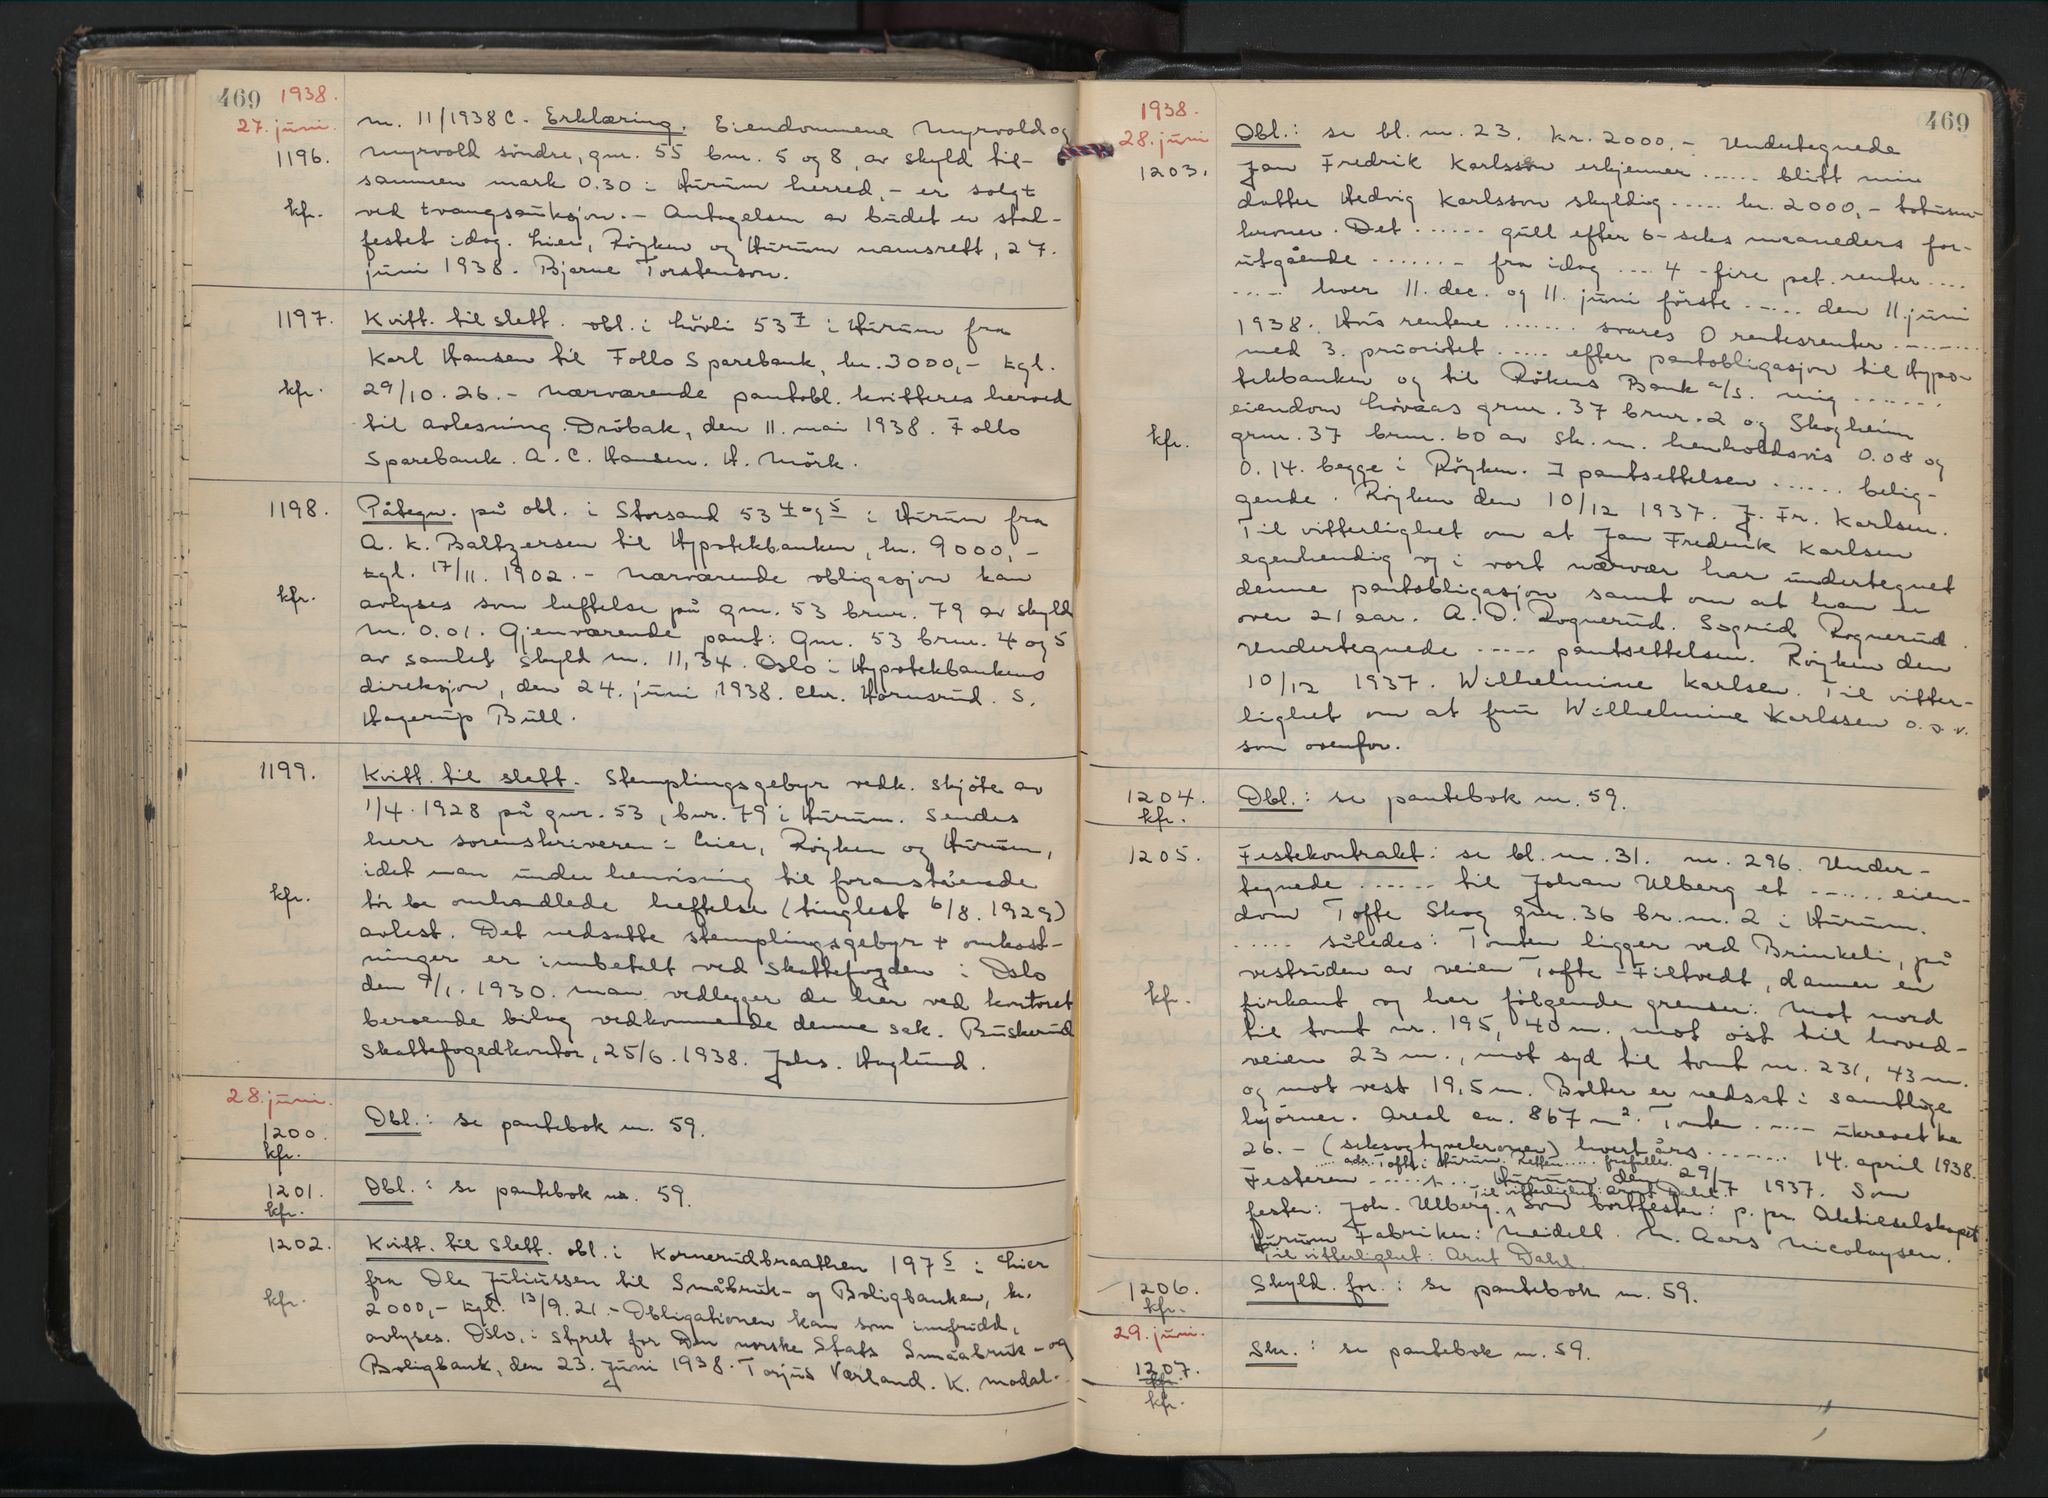 469 1938.
27. juni.
1196.
kfr.
nr. 11/1938 C. Erklæring. Eiendommene Myrvold og
Myrvold söndre, gnr. 55 bnr. 5 og 8, av skyld til-
sammen mark 0.30 i Hurum herred, - er solgt
ved tvangsauksjon. - Antagelsen av budet er stad-
festet idag. Lier, Röyken og Hurum namsrett, 27.
juni 1938. Bjarne Torstenson.
1197.
kfr.
Kvitt. til slett. obl. i Lövli 53 7 i Hurum fra
Karl Hansen til Follo Sparebank, kr. 3000,- tgl.
29/10. 26. - Nærværende pantobl. kvitteres herved
til avlesning. Dröbak, den 11. mai 1938. Follo
Sparebank. A. C. Hansen. H. Mörk.
1198.
kfr.
Påtegn. på obl. i Storsand 53 4 og 5 i Hurum fra
A. K. Baltzersen til Hypotekbanken, kr. 9000,-
tgl. 17/11. 1902. - Nærværende obligasjon kan
avlyses som heftelse på gnr. 53 brnr. 79 av skyld
m. 0.01. Gjenværende pant: Gnr. 53 brnr. 4 og 5
av samlet skyld m. 11,34. Oslo i Hypotekbankens
direksjon, den 24. juni 1938. Chr. Hornsrud. S.
Hagerup Bull.
1199.
kfr.
Kvitt. til slett. Stemplingsgebyr vedk. skjöte av
1/4. 1928 på gnr. 53, bnr. 79 i Hurum. Sendes
herr sorenskriveren i Lier, Röyken og Hurum,
idet man under henvisning til foranstående
tör be omhandlede heftelse (tinglest 6/8. 1929)
avlest. Det nedsatte stemplingsgebyr + omkost-
ninger er innbetalt ved skattefogden i Oslo
den 9/1. 1930. Man vedlegger de her ved kontoret
beroende bilag vedkommende denne sak. Buskerud
Skattefogedkontor, 25/6. 1938. Johs. Haglund.
28. juni.
1200.
kfr.
Obl.: se pantebok nr. 59.
1201.
kfr.
Obl.: se pantebok nr. 59.
1202.
kfr.
Kvitt. til slett. obl. i Kornerudbraathen 197 5 i Lier
fra Ole Juliussen til Småbruk- og Boligbanken, kr.
2000,- tgl. 13/9. 21. - Obligationen kan som innfridd,
avlyses. Oslo, i styret for Den norske Stats Småbruk- og
Boligbank, den 23. Juni 1938. Torjus Værland. K. Modal.
1938.
469
28. juni
1203.
kfr.
Obl.: se bl. nr. 23. kr. 2000.- Undertegnede
Jan Fredrik Karlsson erkjenner ...... blitt min
datter Hedvig Karlsson skyldig ..... kr. 2000,- totusen
kroner. Det ...... gull efter 6- seks maaneders for-
utgående ....... fra idag .... 4 - fire pct. renter ....
..... hver 11. dec. og 11. juni förste ..... den 11. juni
1938. Hvis rentene ....... svares 0 rentesrenter .......
med 3. prioritet ..... efter pantobligasjon til Hypo-
tekbanken og til Rökens Bank a/s. mig .......
eiendom Lövaas grnr. 37 brnr. 2 og Skogheim
grnr. 37 brnr. 60 av sk. m. henholdsvis 0.08 og
0.14. begge i Röyken. I pantsettelsen ...... belig-
gende. Röyken den 10/12 1937. J. Fr. Karlsen.
Til vitterlighet om at Jan Fredrik Karlsen
egenhendig og i vort nærvær har undertegnet
denne pantobligasjon samt om at han er
over 21 aar. A. O. Rognerud. Sogrid Rognerud.
Undertegnede ..... pantsettelsen. Röyken den
10/12 1937. Wilhelmine Karlsen. Til vitter-
lighet om at fru Wilhelmine Karlssen o.s.v.
som ovenfor.
1204.
kfr.
Obl.: se pantebok nr. 59.
1205.
kfr.
Festekontrakt: se bl. nr. 31. nr. 296. Under-
tegnede ...... til Johan Ulberg et ...... eien-
dom Tofte Skog gnr. 36 br.nr. 2 i Hurum.
..... således: Tomten ligger ved Brinkeli, på
vestsiden av veien Tofte - Filtvedt, danner en
firkant og har fölgende grenser: Mot nord
til tomt nr. 195, 40 m., mot öst til hoved-
veien 23 m., mot syd til tomt nr. 231, 43 m.
og mot vest 19,5 m. Bolter er nedsat i samtlige
hjörner. Areal ca. 867 m². Tomten ...... ukrevet kr.
26. - (seksogtyvekroner) hvert års ........ 14. april 1938.
..... adr. Tofte i Hurum. Retten ..... frafalles.
Festeren ........ Hurum den 29/7 1937. Som
Til vitterlighet: Arnt Dahl.
fester: Joh. Ulberg. Som bortfester: p. pr. Aktieselskapet
Hurum Fabriker: Meidell. N. Aars Nicolaysen.
Til vitterlighet: Arnt Dahl.
1206.
kfr.
Skyld. for.: se pantebok nr. 59.
29. juni.
1207.
kfr.
Skr.: se pantebok nr. 59.